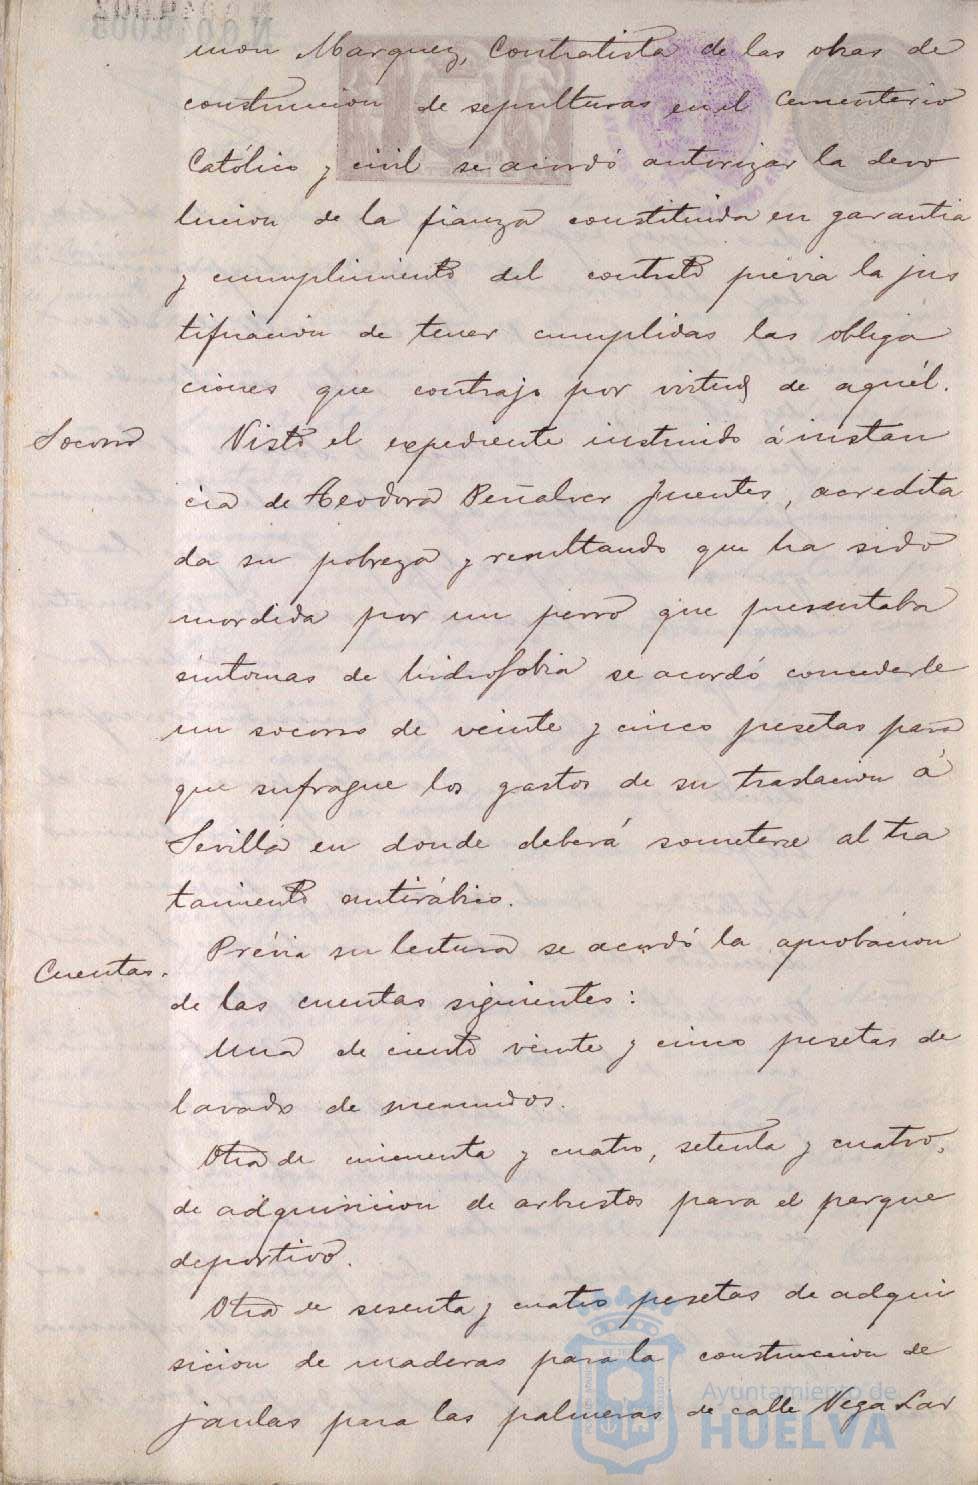 mon Marquez, Contratista de las obras de
construccion de sepulturas en el Cementerio
Católico y civil se acordó autorizar la devo
lucion de la fianza constituida en garantia
y cumplimiento del contrato prévia la jus
tificacion de tener cumplidas las obliga
ciones que contrajo por virtud de aquél.
Socorro
Visto el expediente instruido á instan
cia de Teodora Peñalver Fuentes, acredita
da su pobreza y resultando que ha sido
mordida por un perro que presentaba
síntomas de hidrofobia se acordó concederle
un socorro de veinte y cinco pesetas para
que sufrague los gastos de su traslacion á
Sevilla en donde deberá someterse al tra
tamiento antirábico.
Cuentas.
Prévia su lectura se acordó la aprobacion
de las cuentas siguientes:
Una de ciento veinte y cinco pesetas de
lavado de menudos.
Otra de cincuenta y cuatro, setenta y cuatro,
de adquisicion de arbustos para el parque
deportivo.
Otra de sesenta y cuatro pesetas de adqui
sicion de maderas para la construccion de
jaulas para las palmeras de calle Vega Lar
Ayuntamiento de
HUELVA